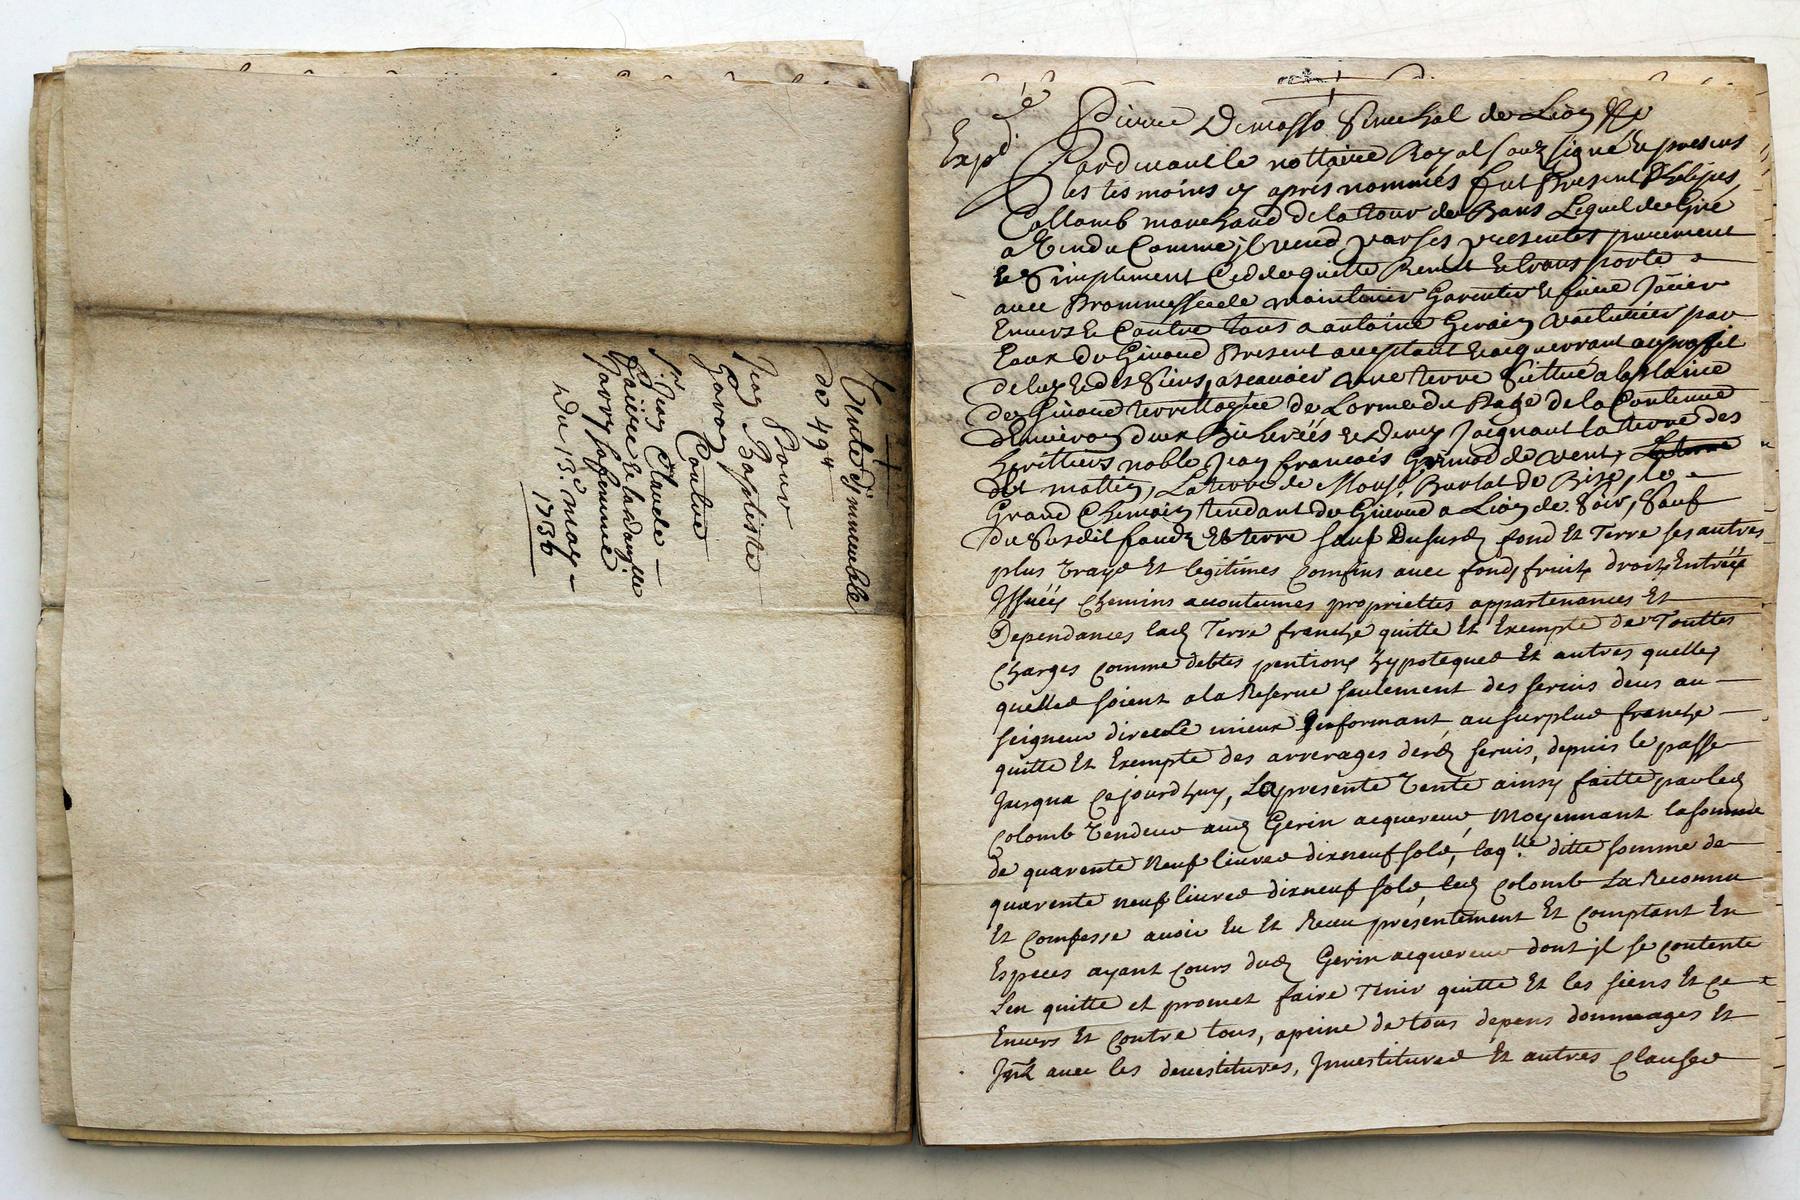 +
Vente d'immeuble
de 494
Pour
Jean Baptiste
Contre
Sr. Jean Claude
da 13e. may
1736
Expd.
Pierre Demasso Senechal de Lion
Pardevant le nottaire Royal souzsigné et presens
Les tesmoins cy aprés nommés fut Present
Collomb marchand de la tour de Bans Lequel de Gré
a Vendu Comme jl vend par ses presentes purement
et Simplement Cedde quitte Remet et transporte a
avec Prommesse de maintenir Garentir et faire Joüir
Envers et Contre tous a antoine Gerin voiturier par
Eaux de Givord Present acceptant et acquerrant au proffit
de luy et des Siens, a scavoir une terre Sittuée a la plaine
de Givord territtoire de Lorme du Bage de la Contenue
d'Environ deux Bicherées et Demy Joignant la terre des
herittiers noble Jean francois Grimod de vent,
de matin, La terre de Mons. Burlat de Bize, le
Grand Chemain tendant de Givord a Lion de Soir, Sauf
du Susdit fondz et terre sauf Dususd fond Et Terre ses autres
plus vrays Et legitimes Confins avec fonds fruits droits Entrées
Issuées chemins accoutumes propriettes appartenances Et
Dependances lad Terre franche quitte Et Exempte de Touttes
Charges comme debtes pentions hypoteques Et autres quelles
quelles soient a la Reserve seulement des servis deus au
seigneur direct Le mieux Jnformant au surplus franche
quitte Et Exempte des arrerages desd servis, depuis le passe
Jusqua cejourdhuy, La presente Vente ainsy faitte par led
Colomb Vendeur aud Gerin acquereur, Moyennant la somme
de quarente neuf livres dixneuf sols, laqlle. ditte somme de
quarente neuf livres dixneuf sols led Colomb La Reconnu
Et Confesse avoir Eu Et Receu presentement Et Comptant En
Especes ayant Cours dud Gerin acquereur dont jl se contente
L'en quitte et promet faire Tenir quitte Et les siens Et Ce
Envers Et Contre tous, apeine de tous depens dommages Et
Jnts avec les devestitures, Jnvestitures Et autres Clauses